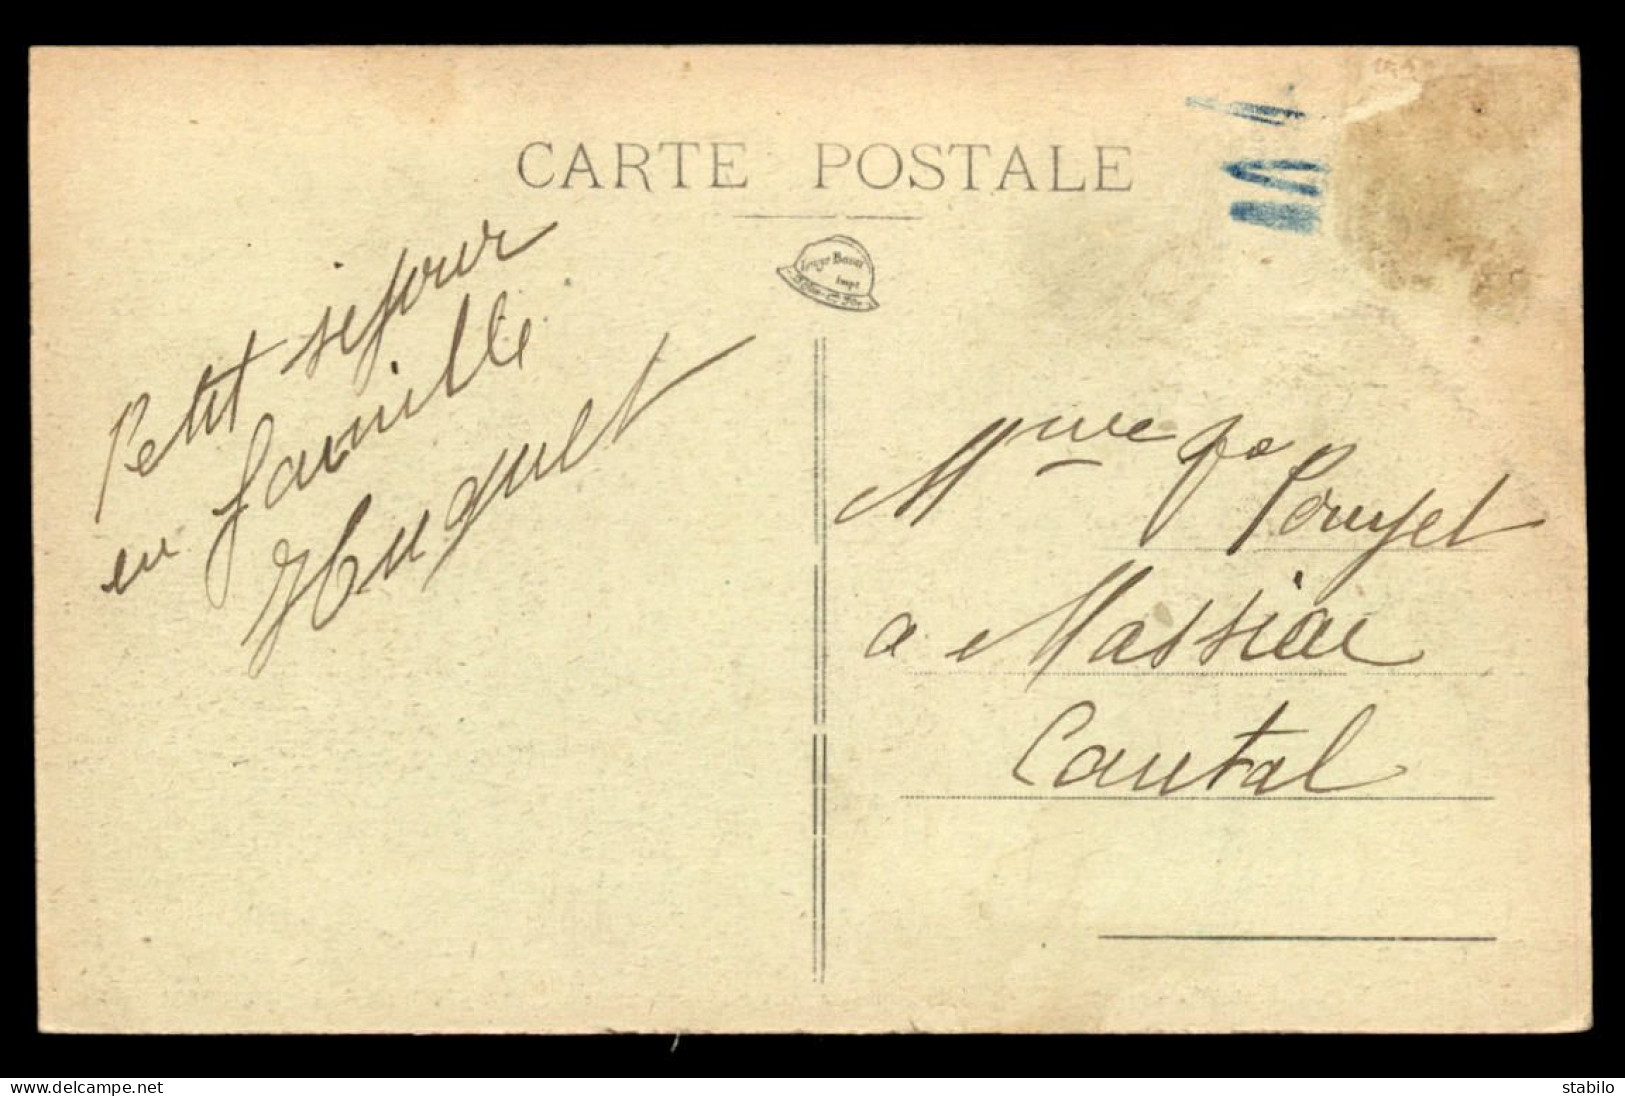 CARTE POSTALE
Petit séjour
en famille
Huguet
Mme
Pouget
a Massiac
Cantal
www.delcampe.net
stabilo